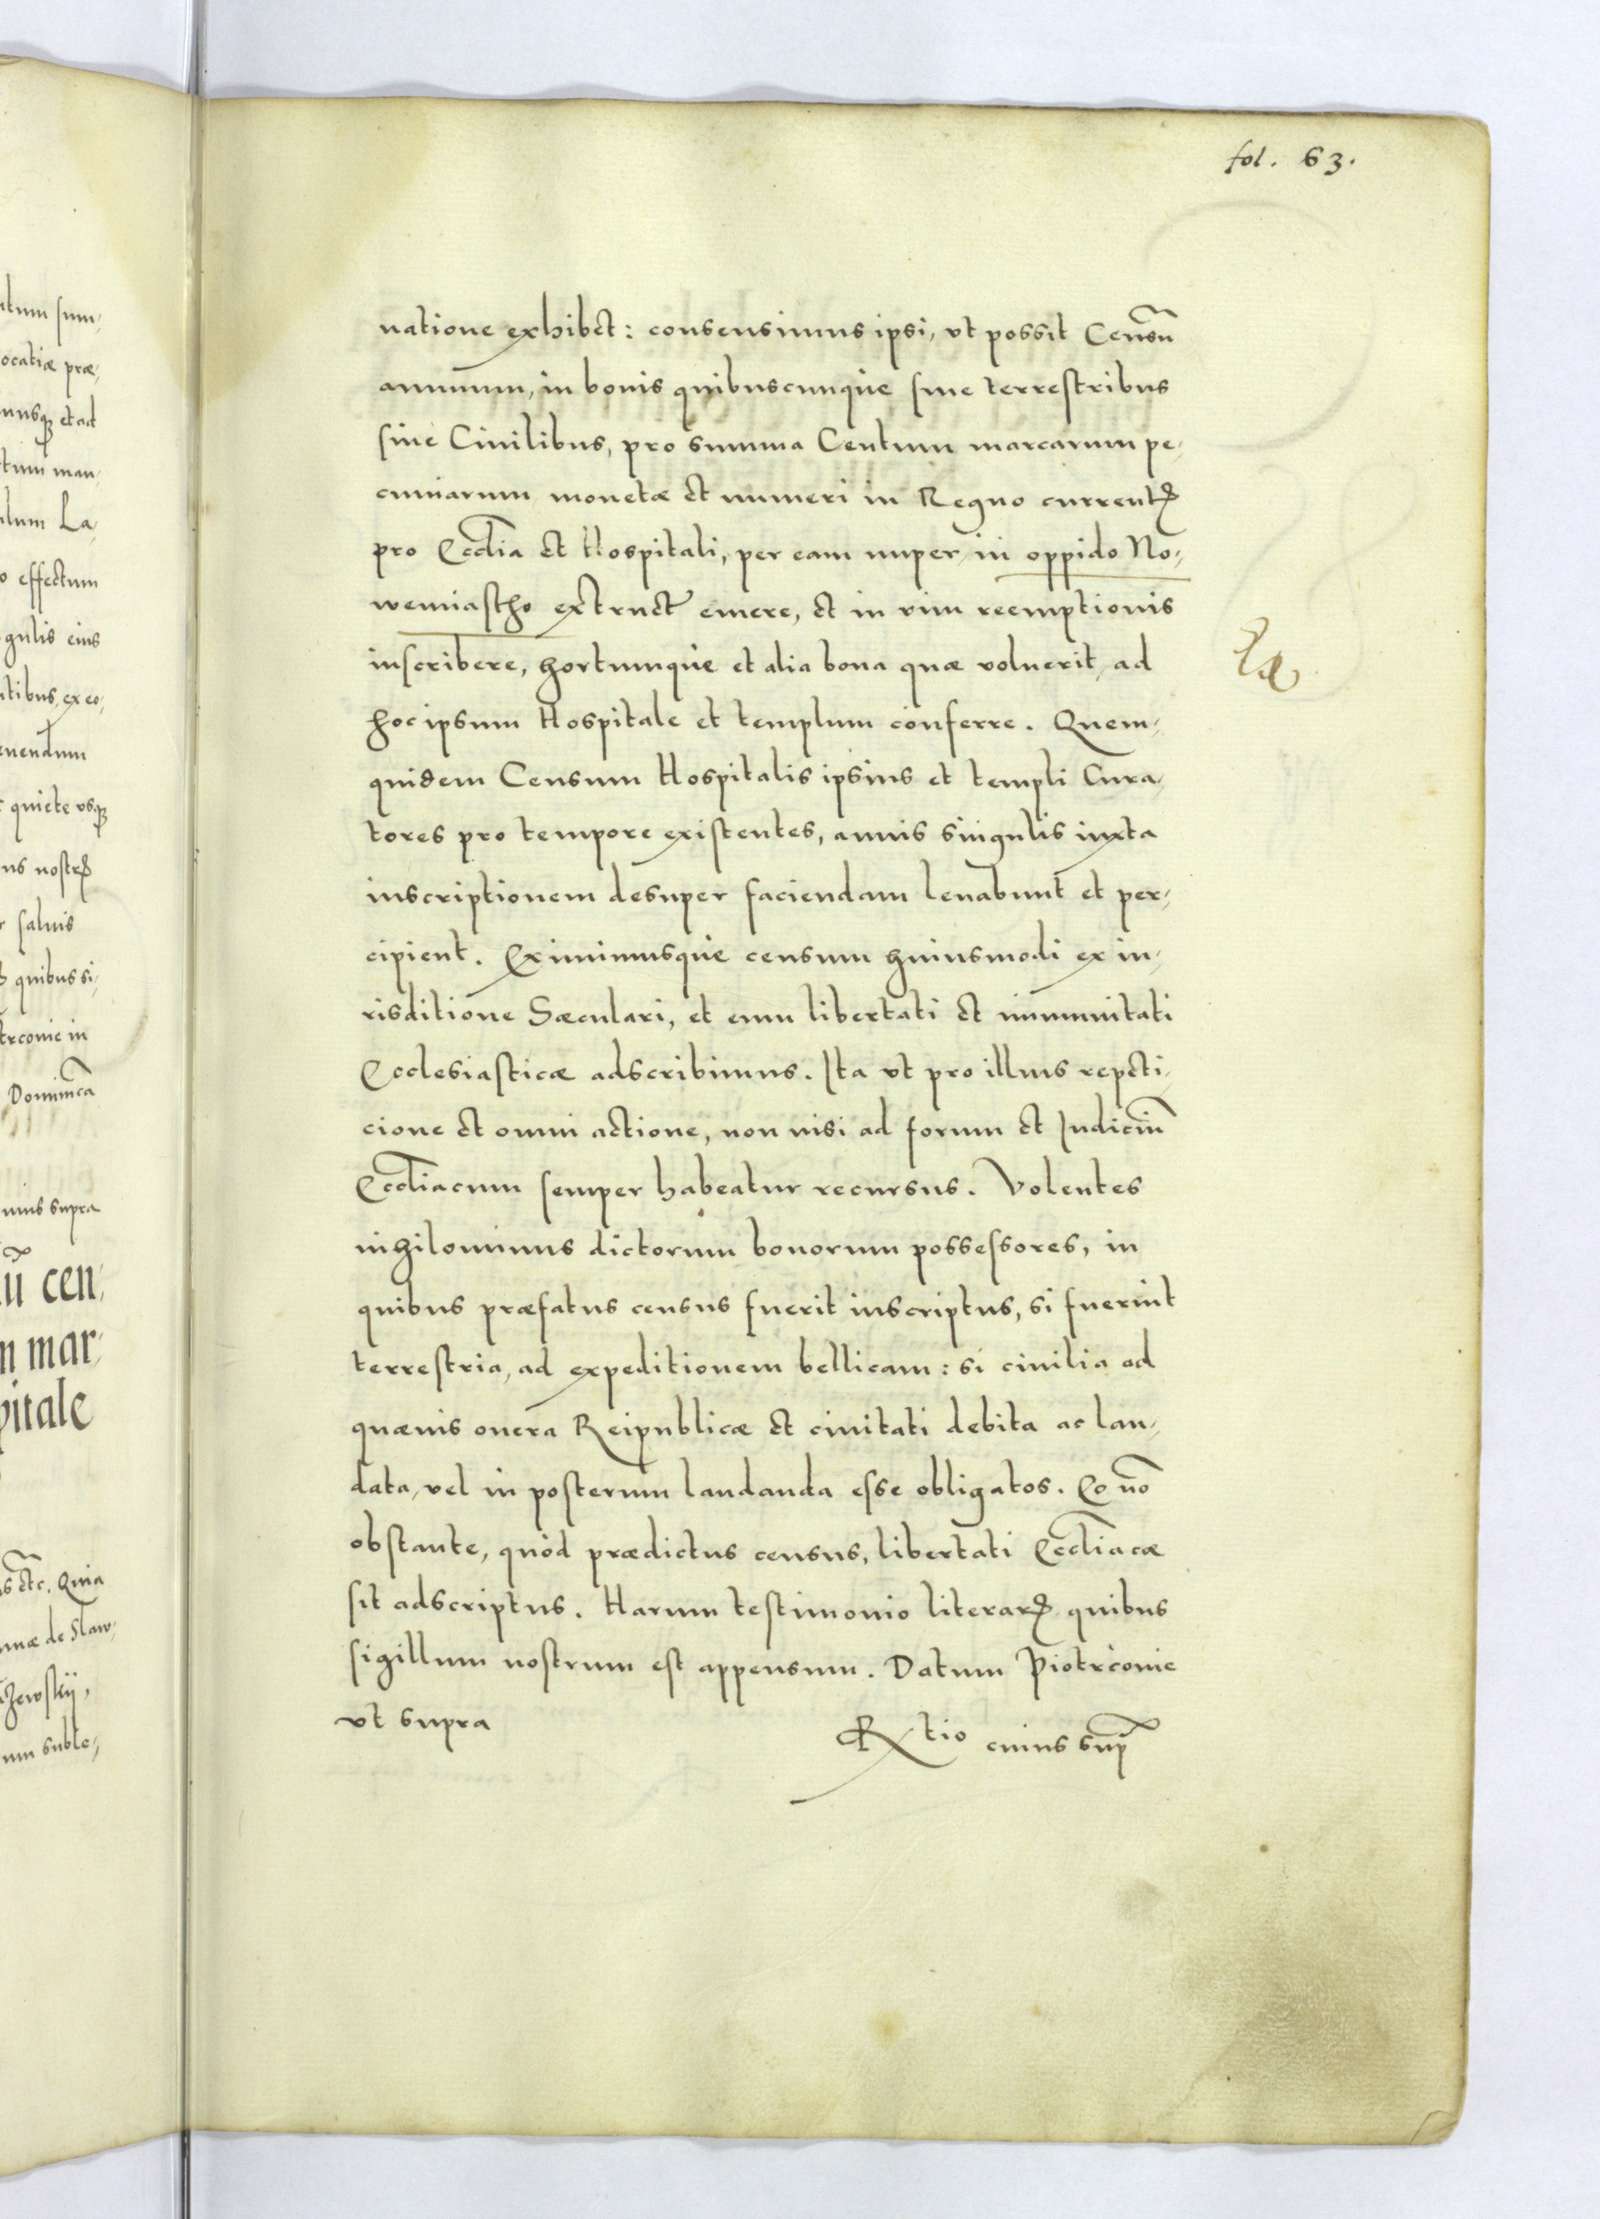 fol. 63.
natione exhibet: consensimus ipsi, vt possit Censũ
annuum, in bonis quibuscunque siue terrestribus
siue Ciuilibus, pro summa Centum marcarum pe-
cuniarum monetæ et numeri in Regno currentꝭ
pro Ecclia et Hospitali, per eam nuper in oppido No-
wemiastho extruct emere, et in vim reemptionis
inscribere, hortumque et alia bona quæ voluerit, ad
hoc ipsum Hospitale et templum conferre. Quem-
quidem Censum Hospitalis ipsius et templi Cura-
tores pro tempore existentes, annis singulis iuxta
inscriptionem desuper faciendam leuabunt et per-
cipient. Eximimusque censum huiusmodi ex iu-
risditione Sæculari, et eum libertati et immunitati
Ecclesiasticæ adscribimus. Ita vt pro illius repeti-
cione et omni actione, non nisi ad forum et Iudiciũ
Eccliacum semper habeatur recursus. Volentes
nihilominus dictorum bonorum possessores, in
quibus præfatus census fuerit inscriptus, si fuerint
terrestria, ad expeditionem bellicam: si ciuilia ad
quæuis onera Reipublicæ et ciuitati debita ac lau-
data, vel in posterum laudanda esse obligatos. Eo nõ
obstante, quòd prædictus census, libertati Eccliacæ
sit adscriptus. Harum testimonio literarꝝ quibus
sigillum nostrum est appensum. Datum Piotrcouie
vt supra
Rtio cuius sup